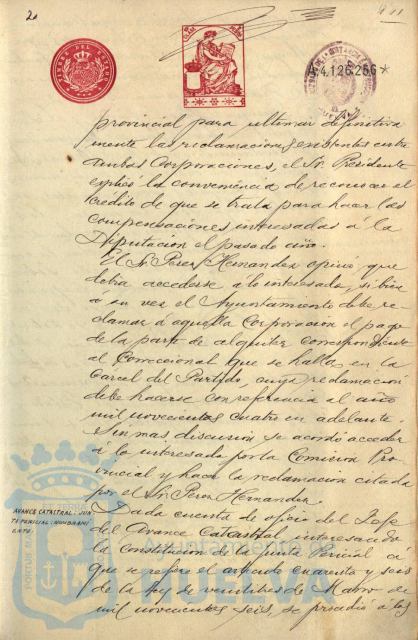 2
A4.126.256*
provincial para ultimar definitiva
mente las reclamaciones pendientes entre
ambas Corporaciones, el Sr. Presidente
explicó la conveniencia de reconocer el
crédito de que se trata para hacer las
compensaciones interesadas á la
Diputación el pasado año.
El Sr. Perez Hernandez opinó que
debia accederse á lo interesado, si bien
á su vez el Ayuntamiento debe re-
clamar á aquella Corporacion el pago
de la parte de alquiler correspondiente
al Correccional que se halla en la
Carcel del Partido, cuya reclamacion
debe hacerse con referencia al año
mil novecientos cuatro en adelante
Sin mas discusion se acordó acceder
á lo interesado por la Comision Pro-
vincial y hacer la reclamacion citada
por el Sr. Perez Hernandez.
AVANCE CATASTRAL: JUN
TA PERICIAL: NOMBRAMI
ENTO
Dada cuenta de oficio del Jefe
del Avance Catastral interesando
la Constitucion de la Junta Pericial á
que se refiere el articulo cuarenta y seis
de la Ley de veintitres de Marzo de
mil novecientos seis, se procedió a la
Ayuntamiento de
HUELVA
PORTUS